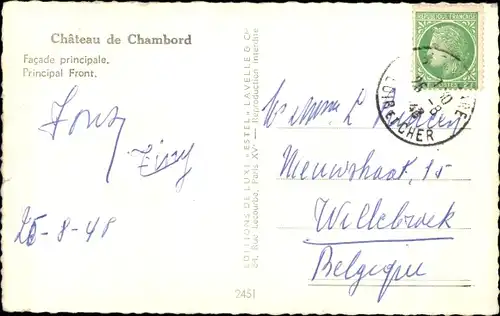 Château de Chambord
Façade principale.
Principal Front.
25-8-48
EDITIONS DE LUXE « ESTEL » LAVELLE & Cie
Rue Lecourbe, Paris XVe — Reproduction interdite
2451
REPUBLIQUE FRANÇAISE
LOIR-ET-CHER
Nieuwstraat, 15
Willebroek
Belgique